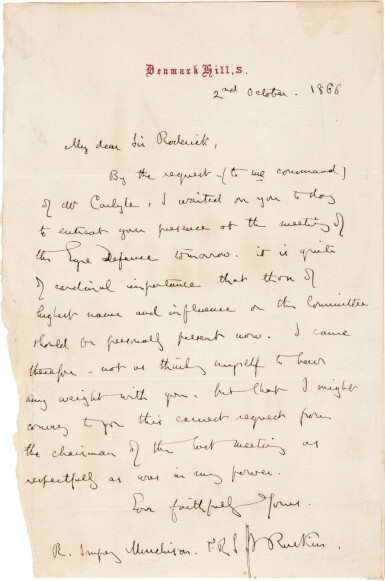 Denmark Hill, S.
2nd October. 1866
My dear Sir Roderick,
By the request - (to me command)
of Mr Carlyle, I waited on you to day
to entreat your presence at the meeting of
the Eyre Defence tomorrow. it is quite
of cardinal importance that those of
highest name and influence on the Committee
should be personally present now. I came
therefore - not as thinking myself to have
any weight with you, but that I might
convey to you this earnest request from
the chairman of the last meeting as
respectfully as was in my power.
Ever faithfully Yours.
J Ruskin.
R. Impey Murchison.